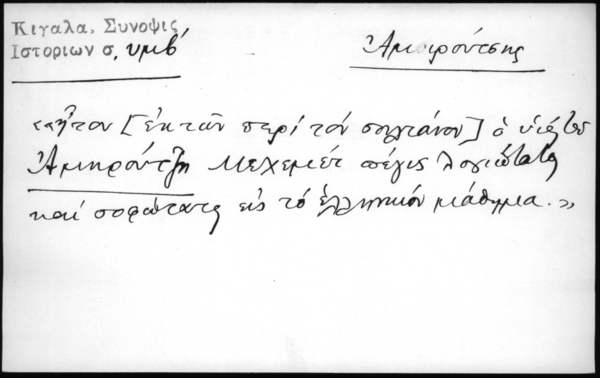 Κιγαλα, Συνοψις
Ιστοριων σ, υμβ'
Ἀμοιρούτσης
«ἦτον [ἐκ τῶν περὶ τὸν σουλτάνον] ὁ υἱὸς τοῦ
Ἀμηρούτζη Μεχεμὲτ πέγις λογιώτατος
καὶ σοφώτατος εἰς τὸ ἑλληνικόν μάθημα.»